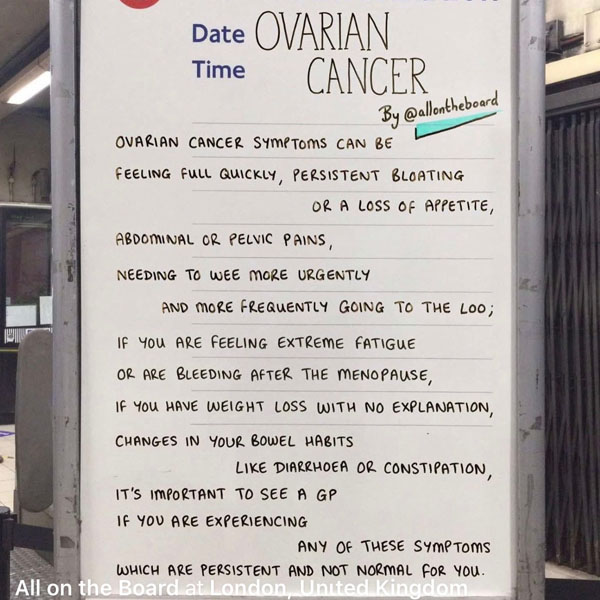 Date OVARIAN
Time CANCER
By @allontheboard
OVARIAN CANCER SYMPTOMS CAN BE
FEELING FULL QUICKLY, PERSISTENT BLOATING
OR A LOSS OF APPETITE,
ABDOMINAL OR PELVIC PAINS,
NEEDING TO WEE MORE URGENTLY
AND MORE FREQUENTLY GOING TO THE LOO;
IF YOU ARE FEELING EXTREME FATIGUE
OR ARE BLEEDING AFTER THE MENOPAUSE,
IF YOU HAVE WEIGHT LOSS WITH NO EXPLANATION,
CHANGES IN YOUR BOWEL HABITS
LIKE DIARRHOEA OR CONSTIPATION,
IT'S IMPORTANT TO SEE A GP
IF YOU ARE EXPERIENCING
ANY OF THESE SYMPTOMS
WHICH ARE PERSISTENT AND NOT NORMAL FOR YOU.
All on the Board at London, United Kingdom